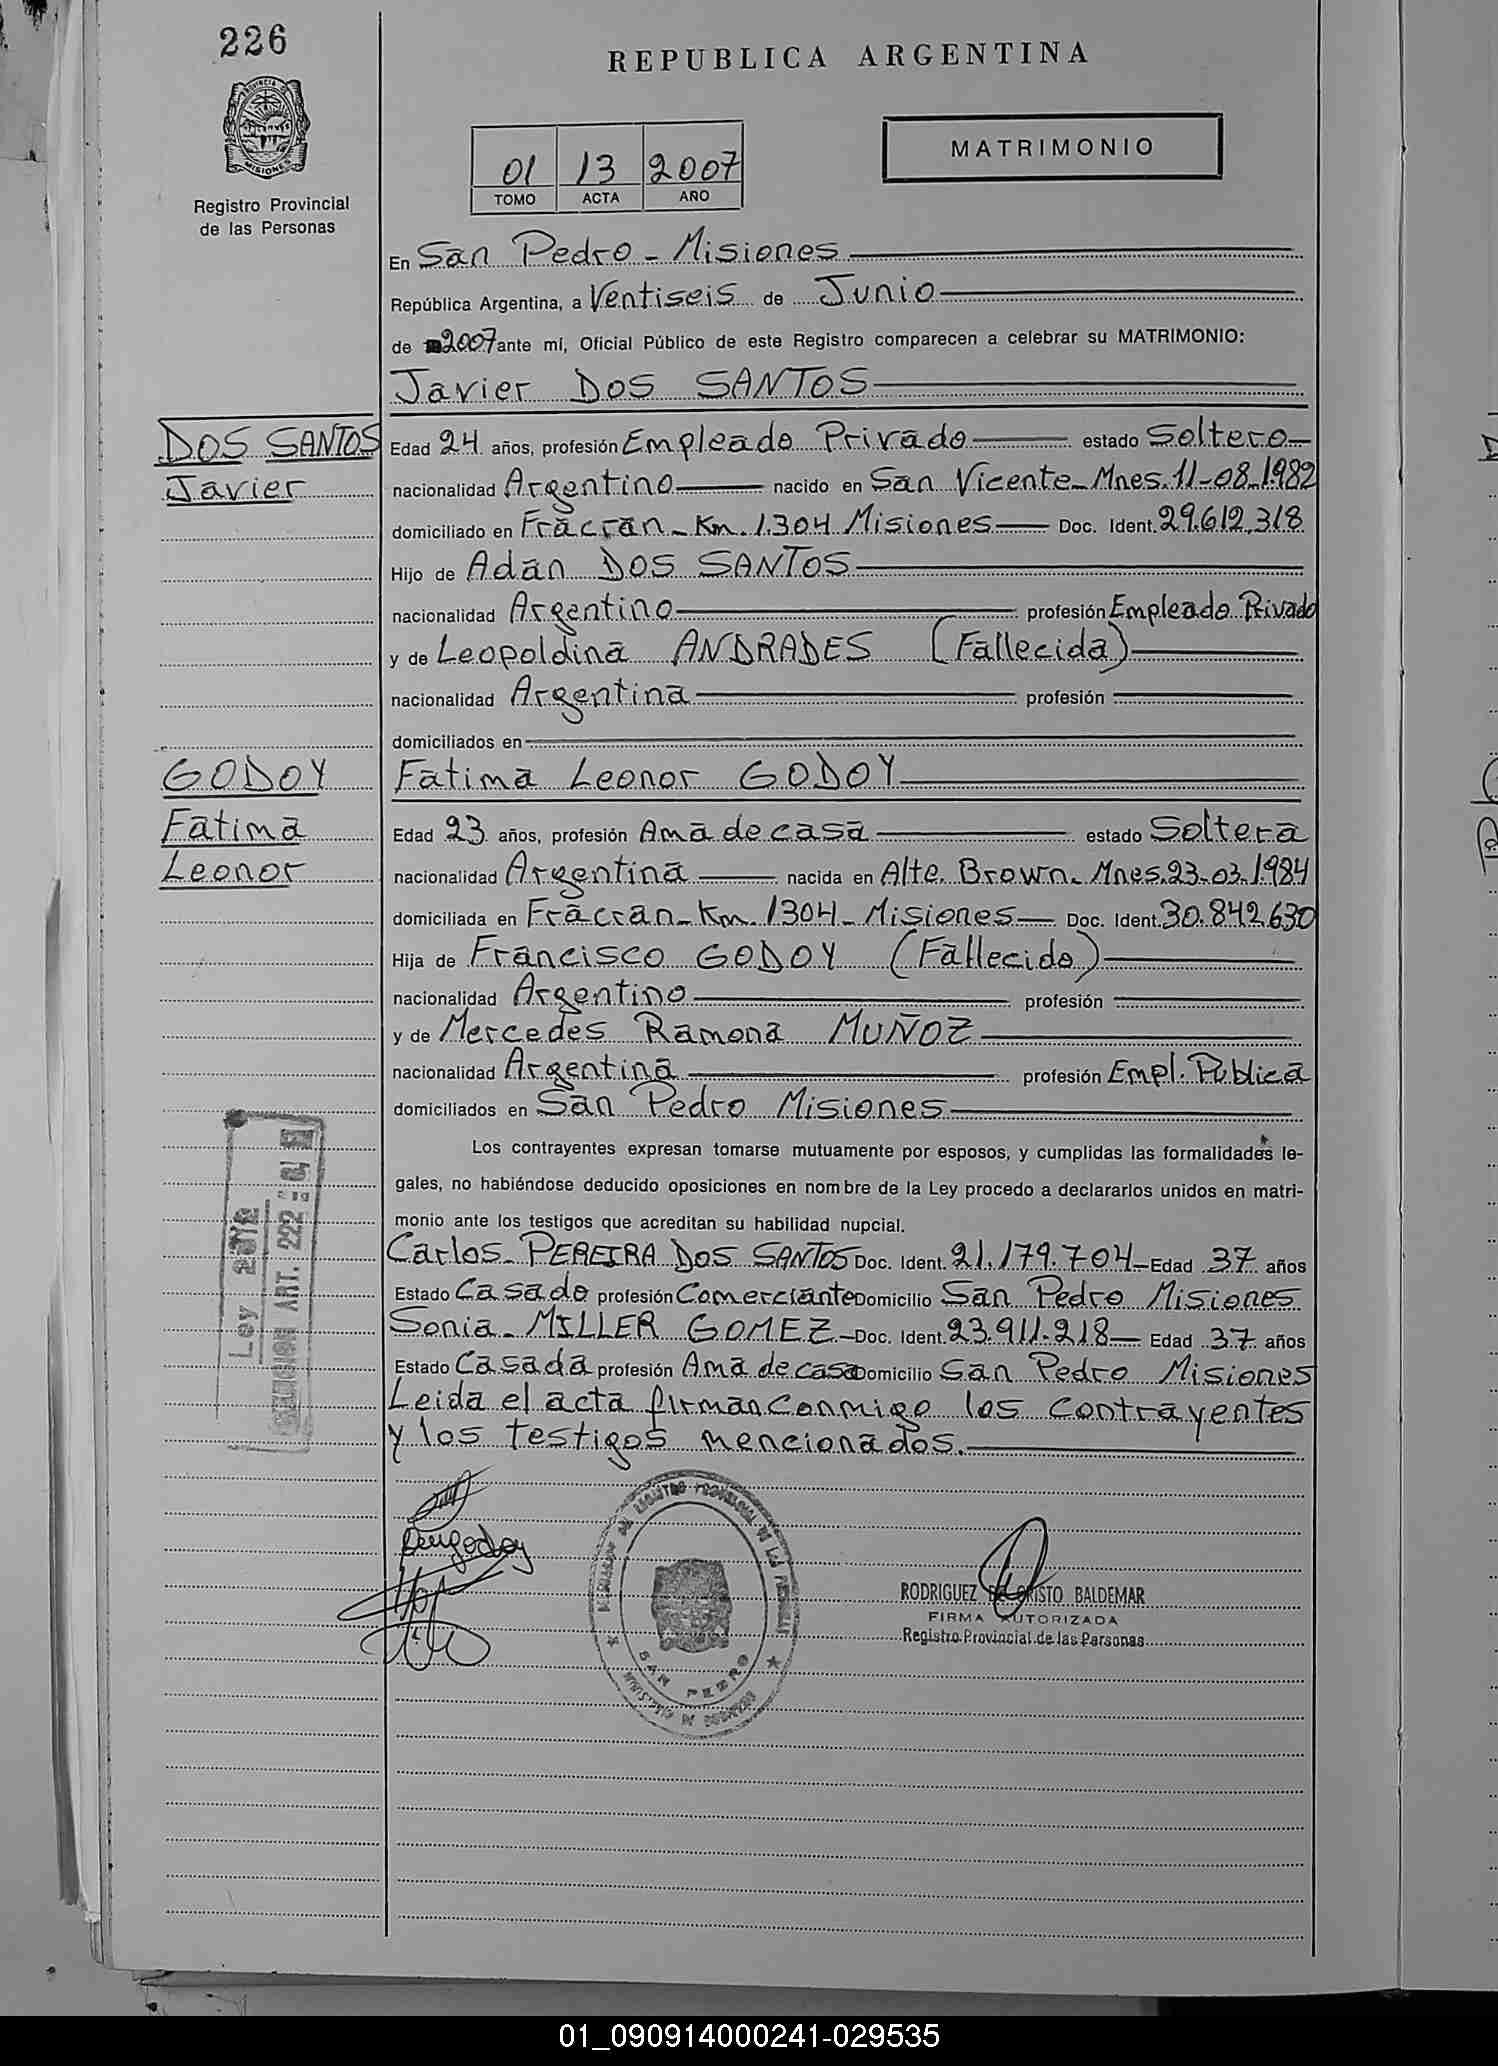 226
REPUBLICA ARGENTINA
PROVINCIA DE
MISIONES
Registro Provincial
de las Personas
01 13 2007
TOMO ACTA AÑO
MATRIMONIO
En San Pedro - Misiones
República Argentina, a Ventiseis de Junio
de 2007 ante mí, Oficial Público de este Registro comparecen a celebrar su MATRIMONIO:
Javier DOS SANTOS
DOS SANTOS
Javier
Edad 24 años, profesión Empleado Privado estado Soltero
nacionalidad Argentino nacido en San Vicente - Mnes. 11-08-1982
domiciliado en Fracran - Km. 1304 Misiones Doc. Ident. 29.612.318
Hijo de Adan DOS SANTOS
nacionalidad Argentino profesión Empleado Privado
y de Leopoldina ANDRADES (Fallecida)
nacionalidad Argentina profesión
domiciliados en
GODOY
Fatima
Leonor
Fatima Leonor GODOY
Edad 23 años, profesión Ama de casa estado Soltera
nacionalidad Argentina nacida en Alte. Brown - Mnes. 23-03-1984
domiciliada en Fracran - Km. 1304 - Misiones Doc. Ident. 30.842.630
Hija de Francisco GODOY (Fallecido)
nacionalidad Argentino profesión
y de Mercedes Ramona MUÑOZ
nacionalidad Argentina profesión Empl. Publica
domiciliados en San Pedro Misiones
Los contrayentes expresan tomarse mutuamente por esposos, y cumplidas las formalidades le-
gales, no habiéndose deducido oposiciones en nombre de la Ley procedo a declararlos unidos en matri-
monio ante los testigos que acreditan su habilidad nupcial.
Carlos PEREIRA DOS SANTOS Doc. Ident. 21.179.704 Edad 37 años
Estado Casado profesión Comerciante Domicilio San Pedro Misiones
Sonia MILLER GOMEZ Doc. Ident. 23.911.218 Edad 37 años
Estado Casada profesión Ama de casa Domicilio San Pedro Misiones
Leida el acta firman conmigo los contrayentes
y los testigos mencionados.
Ley
ART. 222
REGISTRO PROVINCIAL DE LAS PERSONAS
SAN PEDRO
RODRIGUEZ DE CRISTO BALDEMAR
FIRMA AUTORIZADA
Registro Provincial de las Personas
01_090914000241-029535